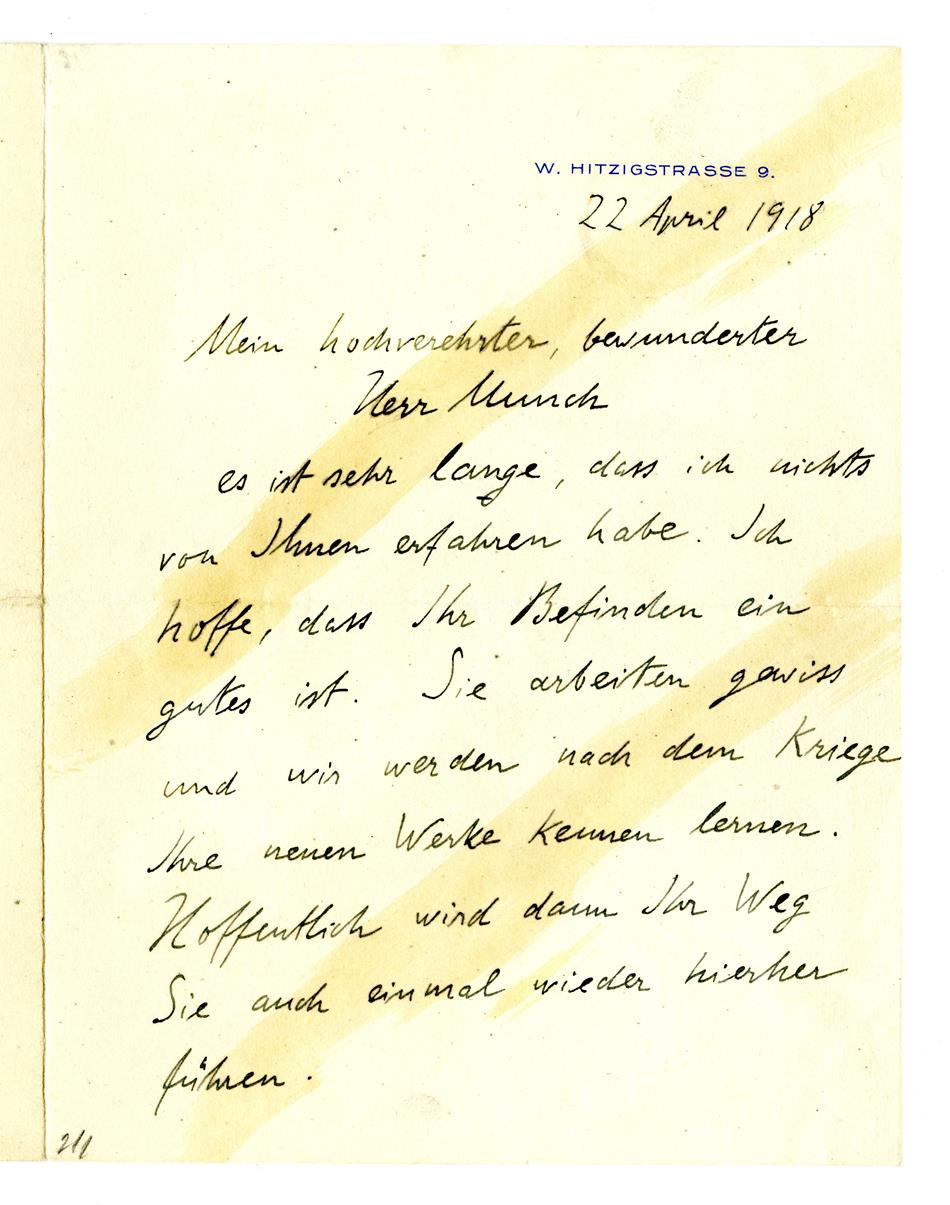 W. HITZIGSTRASSE 9.
22 April 1918
Mein hochverehrter, bewunderter
Herr Munch
es ist sehr lange, dass ich nichts
von Ihnen erfahren habe. Ich
hoffe, dass Ihr Befinden ein
gutes ist. Sie arbeiten gewiss
und wir werden nach dem Kriege
Ihre neuen Werke kennen lernen.
Hoffentlich wird dann Ihr Weg
Sie auch einmal wieder hierher
führen.